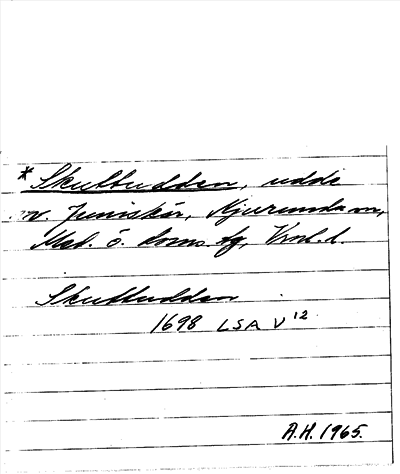 *Skutudden, udde
v. Juniskär, Njurunda sn,
Med. ö. doms. tg, Vnl. l.
Skutudden
1698 LSA V 12
A.H. 1965.